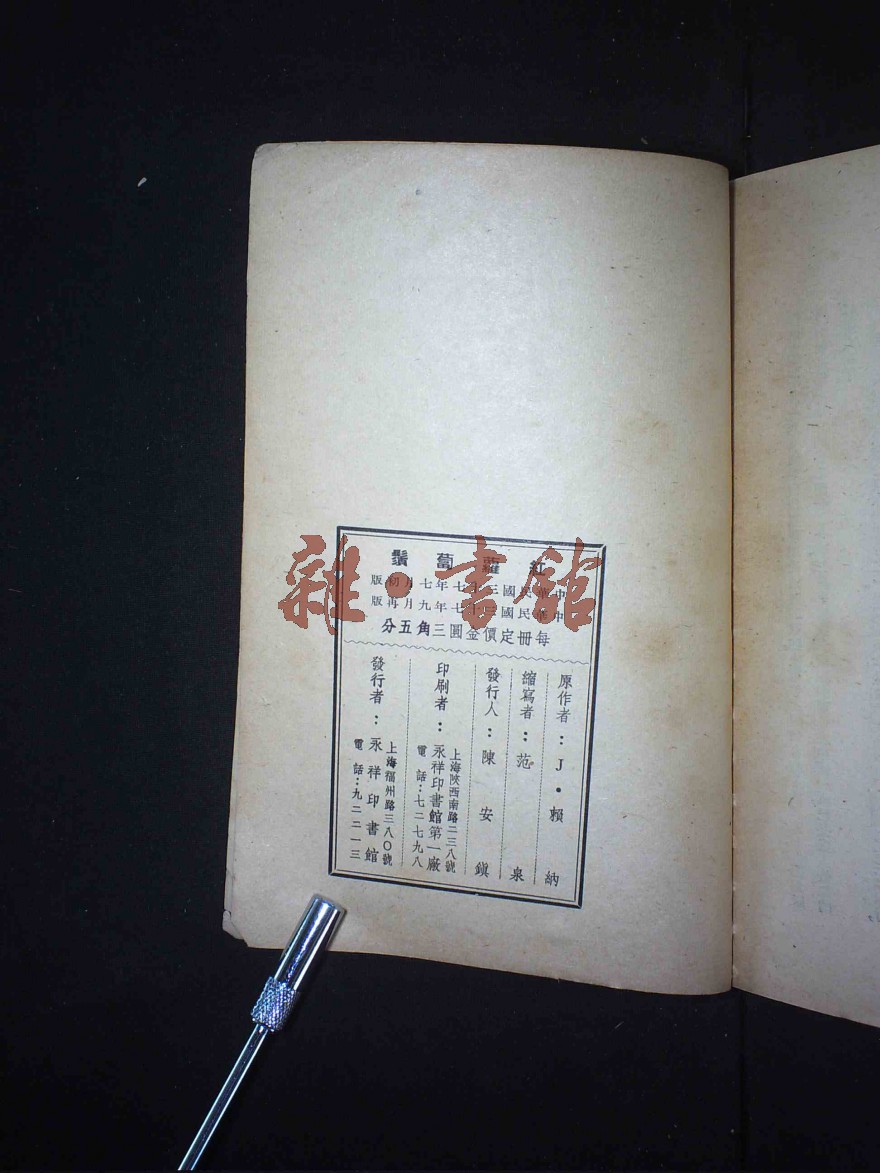 紅蘿蔔鬚
中華民國三十七年七月初版
中華民國三十七年九月再版
每冊定價金圓三角五分
原作者：J·賴納
縮寫者：范泉
發行人：陳安鎮
印刷者：永祥印書館第一廠
上海陝西南路二三八號
電話：七二七九八
發行者：永祥印書館
上海福州路三八〇號
電話：九二二一三
雜·書館